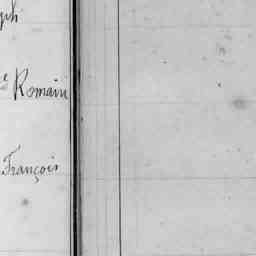 ph
e Romain
François